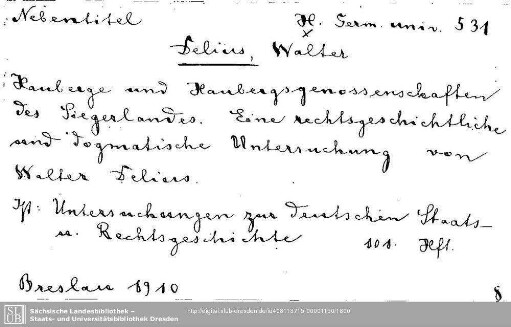 Nebentitel
H. Germ. univ. 531
x
Delius, Walter
Hauberge und Haubergsgenossenschaften
des Siegerlandes. Eine rechtsgeschichtliche
und dogmatische Untersuchung von
Walter Delius.
Ist: Untersuchungen zur deutschen Staats-
u. Rechtsgeschichte 101. Hft.
Breslau 1910
8
SLUB
Sächsische Landesbibliothek –
Staats- und Universitätsbibliothek Dresden